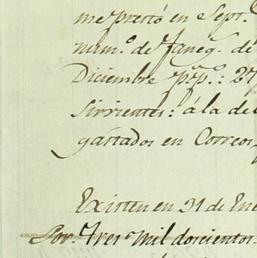 me prestó en Sept.
num.º de Faneg.s dé
Diciembre p.º p.º: 27
Sirvientes: á la de
gastados en Correos
Existen en 31 de Ene
Son. Tres Mil doscientos